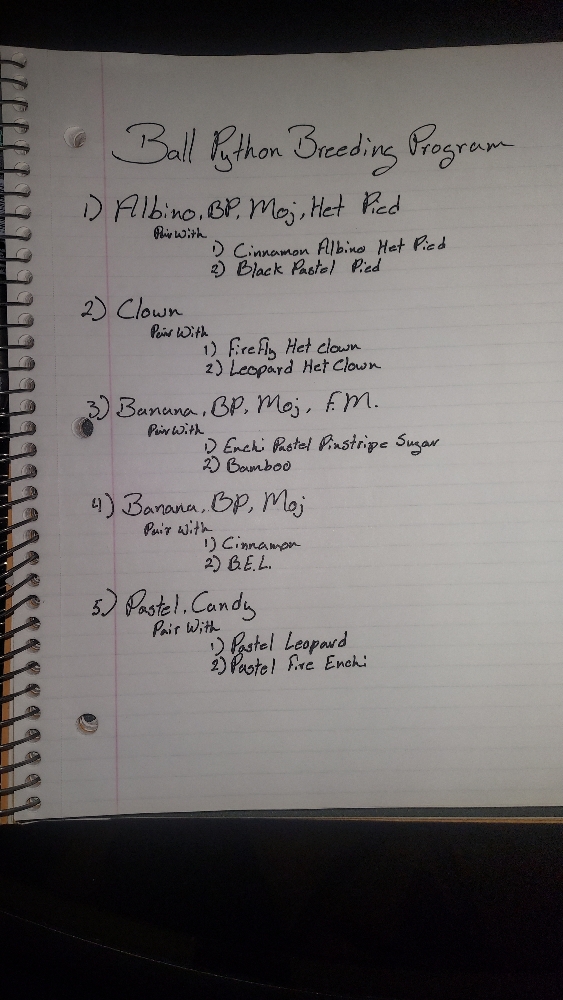 Ball Python Breeding Program
1) Albino, BP, Moj, Het Pied
Pair With
1) Cinnamon Albino Het Pied
2) Black Pastel Pied
2) Clown
Pair With
1) Firefly Het Clown
2) Leopard Het Clown
3) Banana, BP, Moj, F.M.
Pair With
1) Enchi Pastel Pinstripe Sugar
2) Bamboo
4) Banana, BP, Moj
Pair With
1) Cinnamon
2) B.E.L.
5) Pastel, Candy
Pair With
1) Pastel Leopard
2) Pastel Fire Enchi